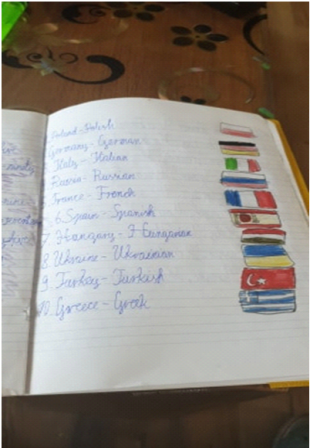 Poland - Polish
Germany - German
Italy - Italian
Russia - Russian
France - French
6. Spain - Spanish
7. Hungary - Hungarian
8. Ukraine - Ukrainian
9. Turkey - Turkish
10. Greece - Greek